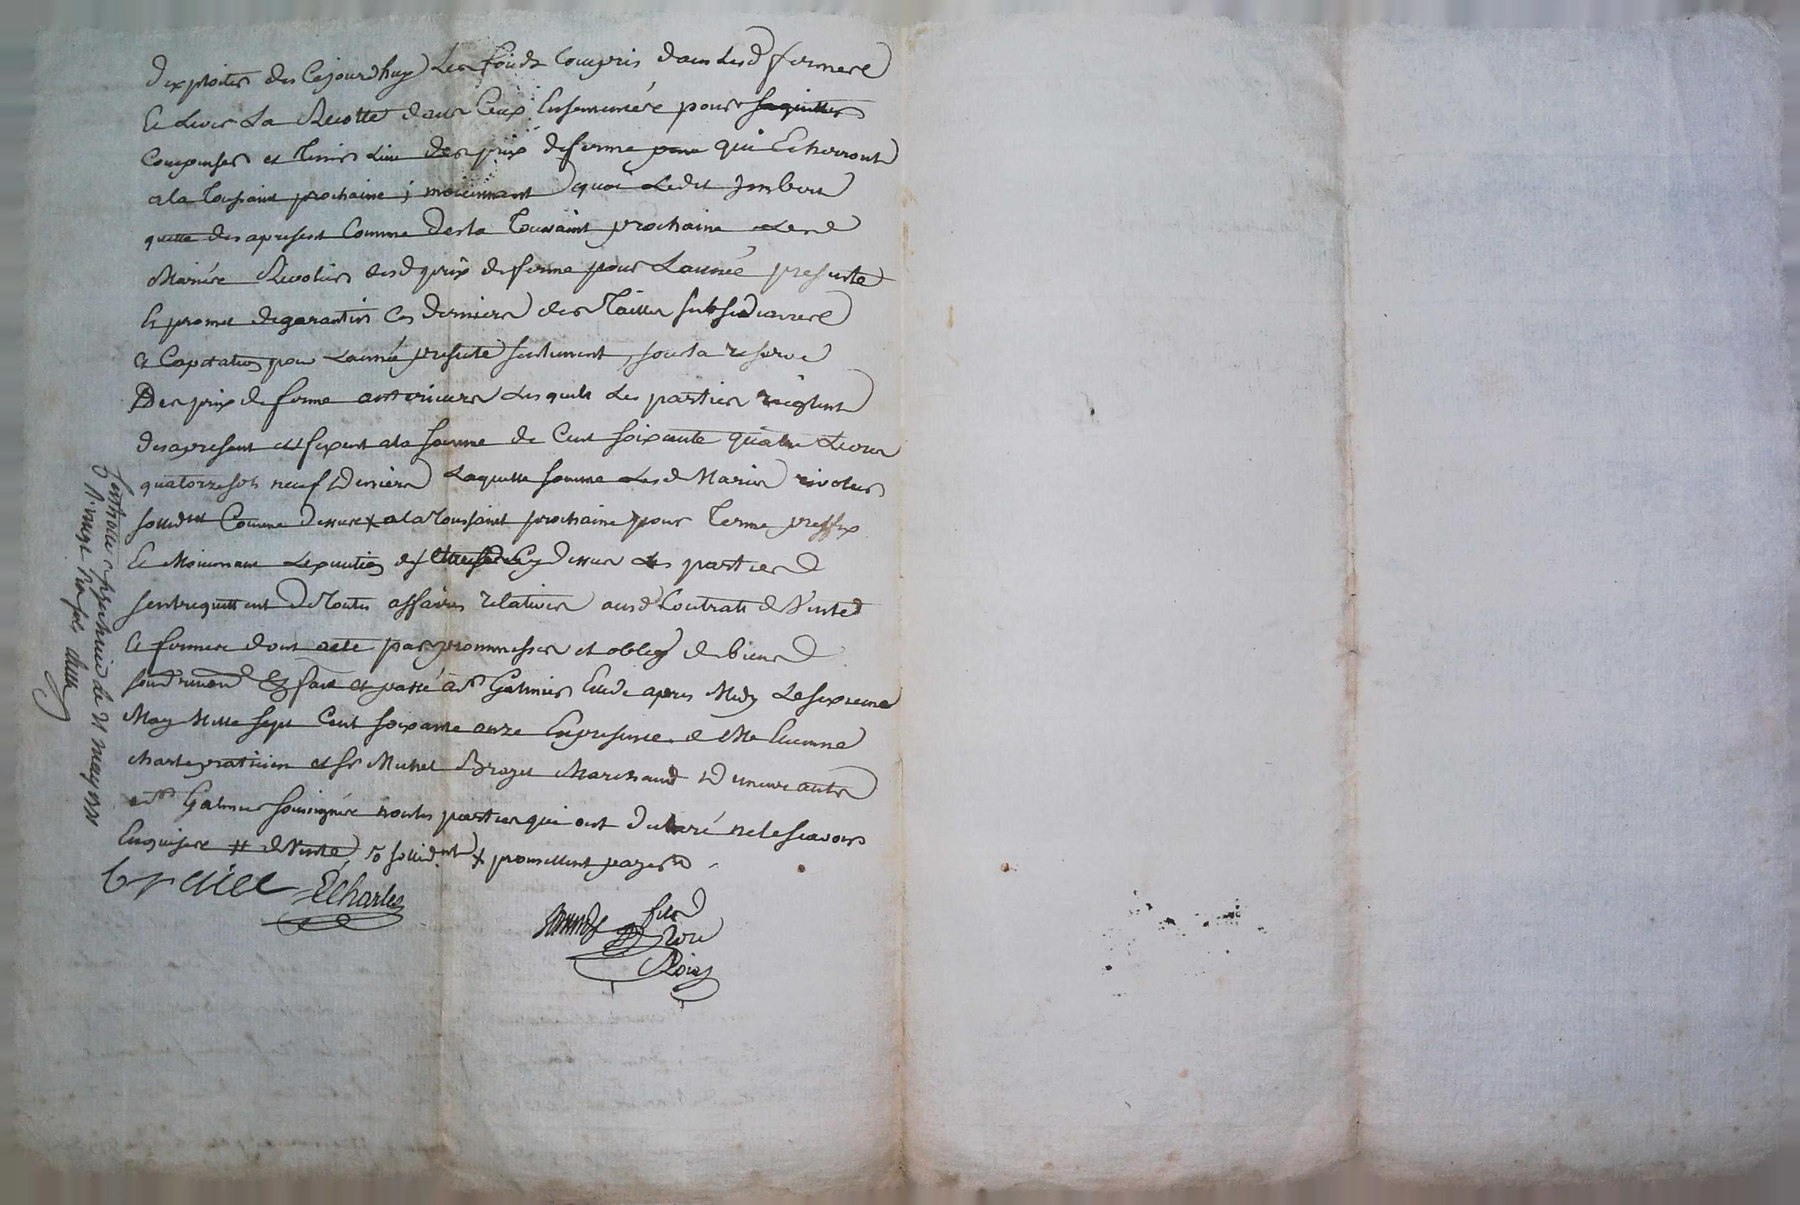 d'exploiter des cejourdhuy les fonds compris dans lesd fermes
et lever la Recotte dans ceux Ensemencés pour
compenser et tenir lieu des prix de ferme qui Echerront
a la toussaint prochaine ; moiennant quoi ledit Imbert
quitte des apresent comme des la Toussaint prochaine lesd
Mariés Rivolier desd prix de ferme pour l'année presente
et promet de garantir ces derniers des Tailles subsidiaires
et Capitation pour l'année presente seulement, sous la reserve
Des prix de ferme anterieurs lesquels les parties reiglent
des apresent et fixent a la somme de Cent soixante quatre livres
quatorze sols neuf deniers laquelle somme lesd Mariés rivolier
sollidt comme dessus x a la toussaint prochaine pour terme preffix
Et Moiennant l'execution des Cy dessus les parties
s'entrequittent de toutes affaires relatives ausd Contrats de Vente
et fermes dont acte par promesses et oblig de biens
soud renond &c fait et passé a St Galmier Etude apres Midy le sixieme
May Mille sept Cent soixante onze En presence de Me Etienne
Charles praticien et Sr Michel Brazet Marchand demeurants
a St Galmier soussignés non les parties qui ont declaré ne le scavoir
Enquises # de Vente, 50 sollidt x promettent payer
E Charles